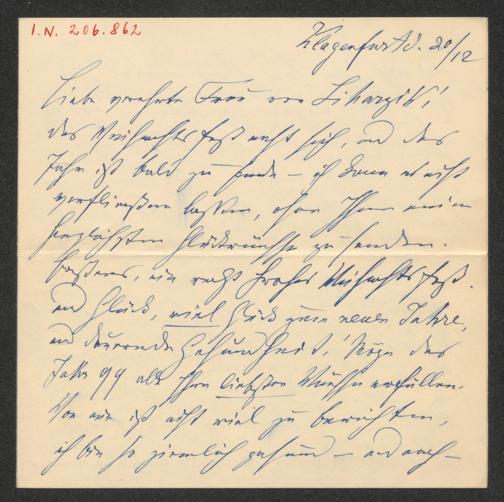 I.N. 206.862
Klagenfurt d. 20/12
Liebe verehrte Frau von Littrow!
das Weihnachtsfest naht sich, und das
Jahr ist bald zu Ende – ich kann es nicht
verfließen lassen, ohne Ihnen meine
herzlichsten Glückwünsche zu senden.
ein recht frohes Weihnachtsfest.
und Glück, viel Glück zum neuen Jahre,
und dauernde Gesundheit! Möge das
Jahr 99 alle Ihre liebsten Wünsche erfüllen.
Von mir ist nicht viel zu berichten,
ich bin so ziemlich gesund – und auch –